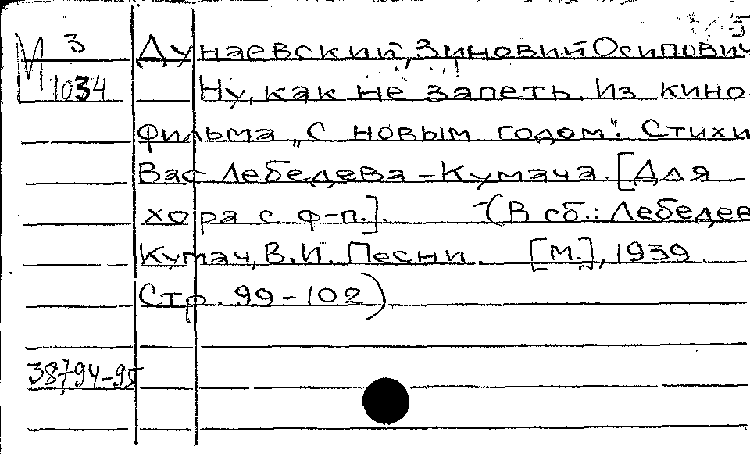 М 3
1034
Дунаевский, Зиновий Осипович
Ну, как не запеть. Из кино-
фильма „С новым годом". Стихи
Вас Лебедева-Кумача. [Для
хора с ф-п.]. (В сб.: Лебедев
Кумач, В.И. Песни. [М.], 1939.
Стр. 99-102)
38794-95